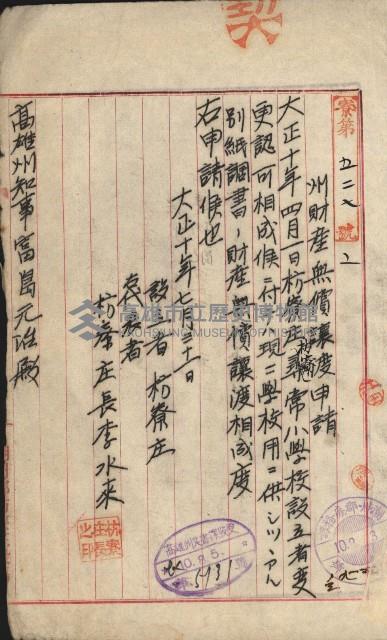 寮第五二七號ノ
州財産無償讓渡申請
大正十年四月一日枋寮庄枋寮尋常小學校設立者變
更認可相成候ニ付テハ現ニ學校用ニ供シツツアル
別紙調書ノ財産無償讓渡相成度
右申請候也
大正十年七月三十一日
設立者 枋寮庄
代表者
枋寮庄長李水來
枋寮庄長之印
高雄州知事富島元治殿
高雄市立歷史博物館
KAOHSIUNG MUSEUM OF HISTORY
10.8.5